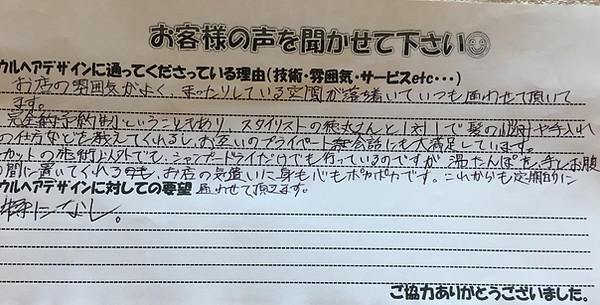 お客様の声を聞かせて下さい☺
ウルヘアデザインに通ってくださっている理由(技術・雰囲気・サービスetc・・・)
お店の雰囲気がよく、まったりしている空間が落ち着いていつも通わせて頂いて
ます。
完全予約制ということもあり、スタイリストの徳太さんと1対1で髪の悩みや手入れ
の仕方などを教えてくれるし、お互いのプライベートな会話にも大満足しています。
カットの施術以外でも、シャンプードライだけでも行っているのですが、湯たんぽを、手とお腹
の間に置いてくれるのも、お店の気遣いに身も心もポカポカです。これからも定期的に
ウルヘアデザインに対しての要望 通わせて頂きます。
特になし。
ご協力ありがとうございました。